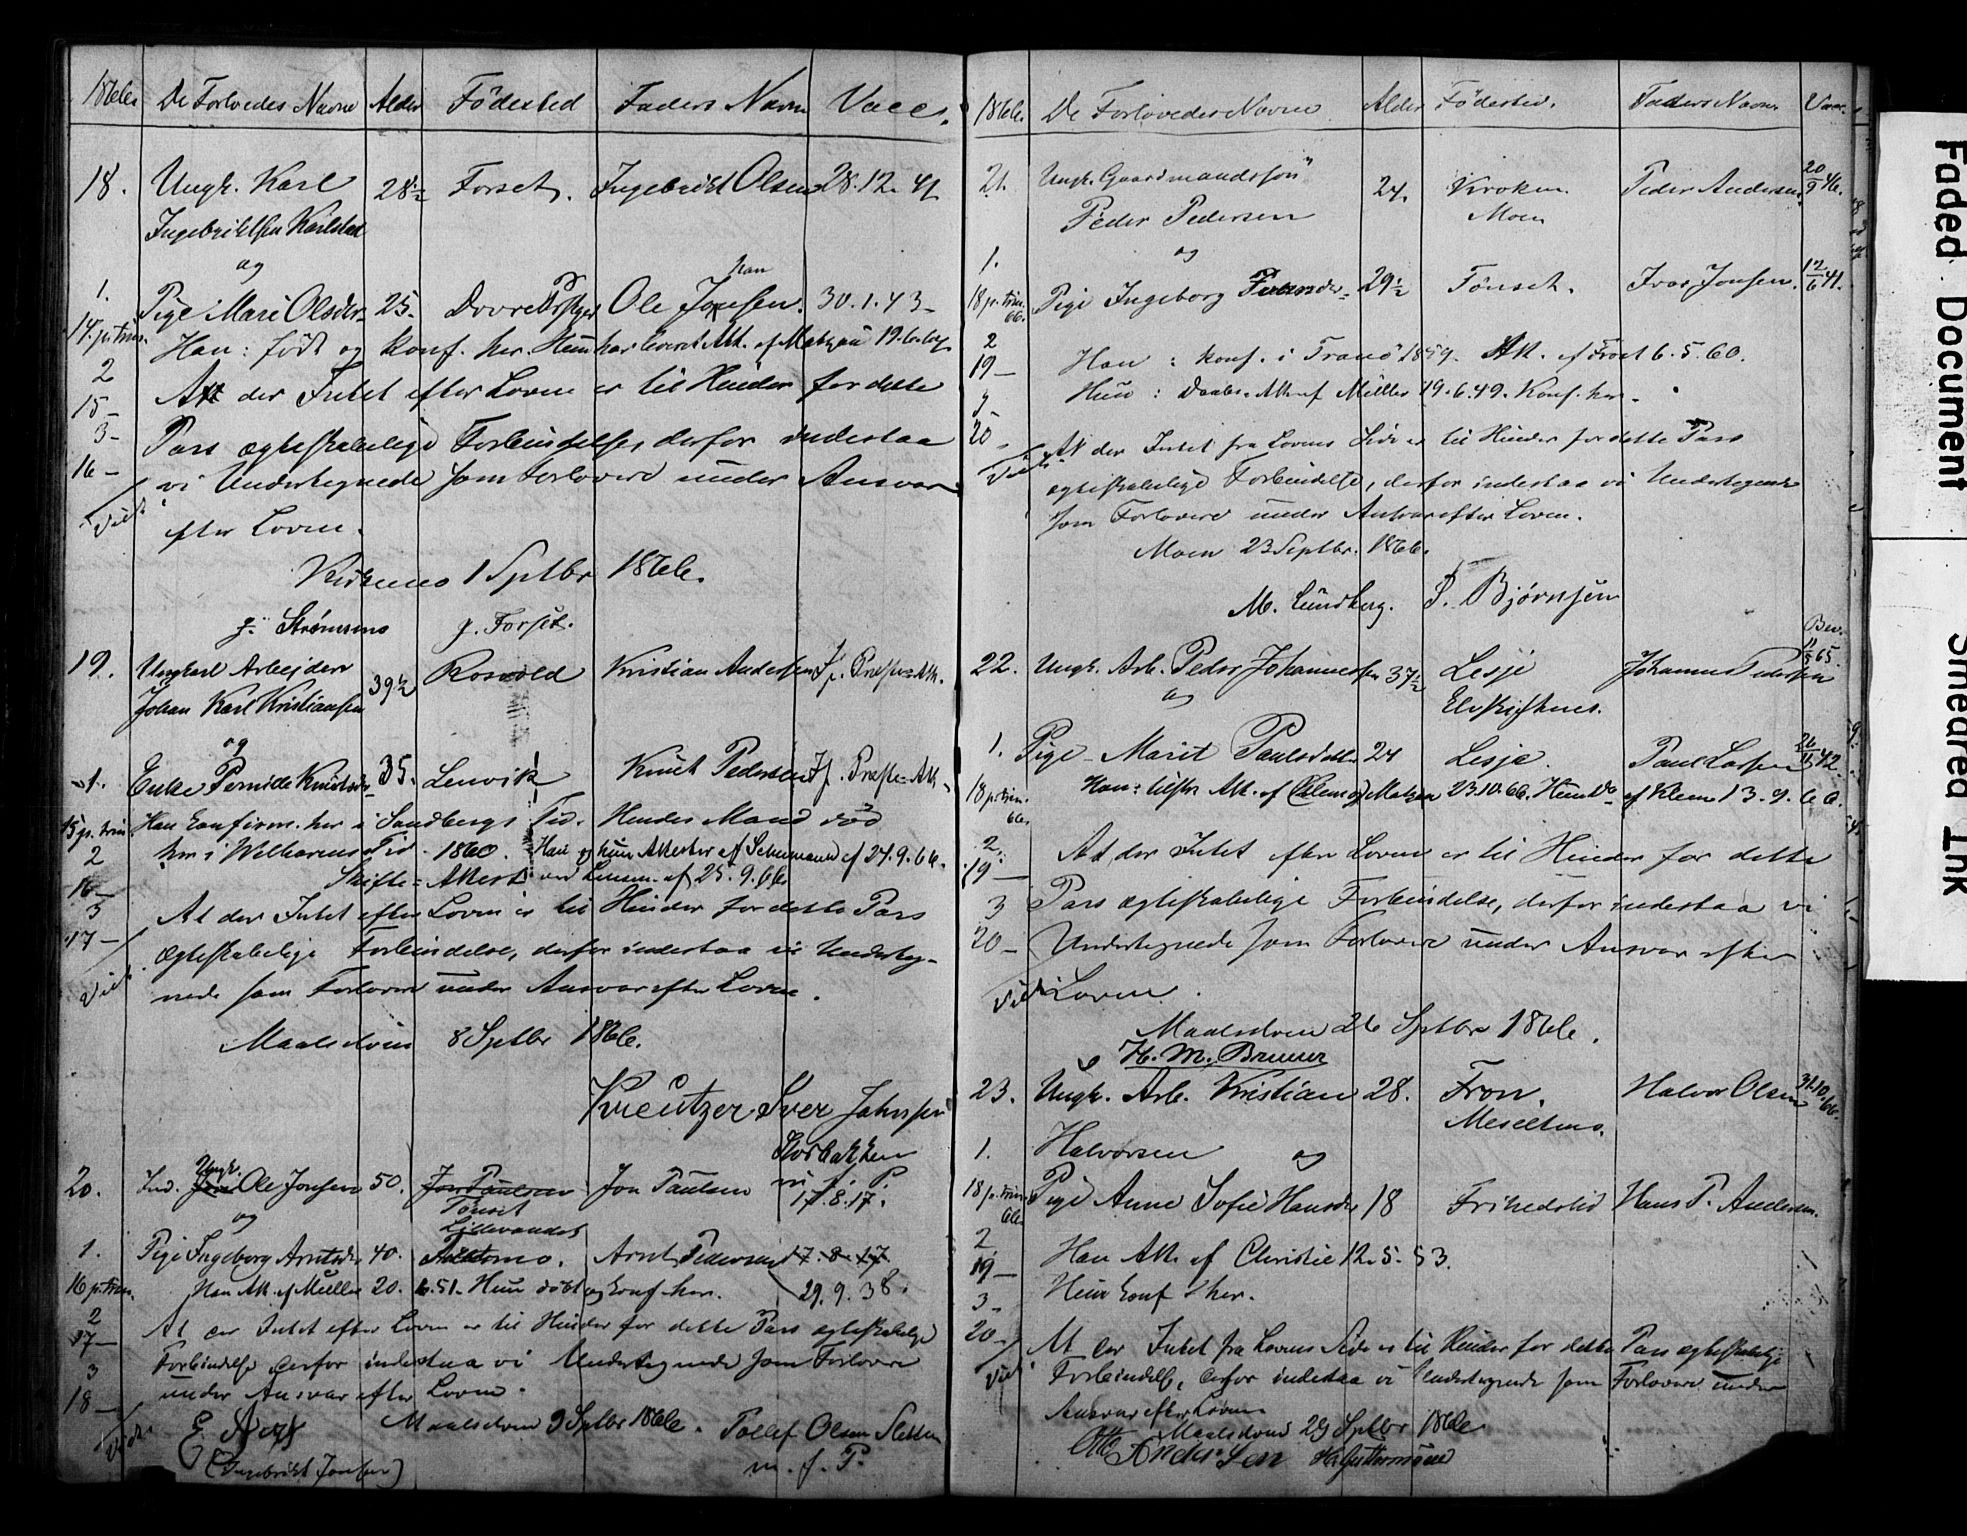 1866 De Forlovedes Navne Alder Födested Faders Navn Vacc.
18. Ungk. Karl 28½ Forset. Ingebrikt Olsen 28.12.41
Ingebriktsen Karlstad
og
1. Pige Mari Olsdr. 25. Dovre Ole Jonsen. 30.1.43
14. p. trin. Han: født og konf. her. Hun har leveret Att. af
2 At der Intet efter Loven er til Hinder for dette
15 –
3 – Pars ægteskabelige Forbindelse, derfor indestaa
16 – vi Undertegnede som Forlovere under Ansvar
Viet efter Loven.
Kirkemo 1 Septbr 1866.
J. Strømsmo J. Forset.
19. Ungkarl Arbejder 39½ Rosvold Kristian Andersen If. Præste-Att.
Johan Karl Kristiansen
og
1. Enke Pernille Knutsdr 35. Lenvik Knut Pedersen If. Præste-Att.
15 p. trin Han konfirm. her i Sandbergs Tid. Hendes Mand död
2 her i Tid. 1860. Han og hun Attester af af 24.9.66.
16 – Skifte-Attest af 25.9.66
3 At der Intet efter Loven er til Hinder for dette Pars
17 – ægteskabelige Forbindelse, derfor indestaa vi Underteg-
Viet nede som Forlovere under Ansvar efter Loven.
Maalsdven 8 Septbr 1866.
Kreutzer Iver Johnsen
Storbakken
m. f. P.
20. Ind. Ungk. Ole Jonsen 50. Jon Paulsen Jon Paulsen 17.8.17.
Tönset
og Lillevandet
1. Pige Ingeborg Arntsdr 40. Arnt Pedersen 17.8.17
16 p. trin. Han Att. af Müller 20.6.51. Hun döbt og konf. her. 29.9.38.
2 At der Intet efter Loven er til Hinder for dette Pars ægteskabelige
17 –
3 Forbindelse derfor indestaa vi Undertegnede som Forlovere
18 – under Ansvar efter Loven.
Viet Maalsdven 9 Septbr 1866. Tollef Olsen Sletten
(Ingebrikt Jonsen) m. f. P.
1866. De Forlovedes Navne Alder Födested. Faders Navn. Vacc.
21. Ungk. Gaardmandssön 24. Kroken Peder Andersen 20/9 46.
Peder Pedersen Moen
og
1.
18 p. trin. 66. Pige Ingeborg 29½ Tönset. Ivar Jonsen. 12/6 41.
2
19 – Han: konf. i Tranö 1859. Att. af 6.5.60.
3 Hun: Daabs-Att. af Müller 19.6.49. Konf. her.
20 – At der Intet fra Lovens Side er til Hinder for dette Pars
Viet ægteskabelige Forbindelse, derfor indestaa vi Undertegnede
som Forlovere under Ansvar efter Loven.
Moen 23 Septbr. 1866.
M. Lundberg. P. Bjørnsen
Bev.
22. Ungk. Arb. Peder Johannessen 37½ Lesje Johannes Pedersen 65.
og Elvskiftnes.
1. Pige Marit Paulsdatter 24 Lesje. Paul Larsen 42.
18 p. trin. 66. Han: Att. af 23.10.66. Hun do af Klem 13.9.66.
2
19 – At der Intet efter Loven er til Hinder for dette
3 Pars ægteskabelige Forbindelse, derfor indestaa vi
20 – Undertegnede som Forlovere under Ansvar efter
Viet Loven.
Maalsdven 26 Septbr 1866.
H. M. Bruner
23. Ungk. Arb. Kristian 28. Fron. Halvor Olsen 31.10.66.
Moseltmo.
1. Halvorsen og
18 p. trin. 66 Pige Anne Sofie Hansdr 18 Frihedslid Hans P. Andersen.
2 Han Att. af Christie 12.5.53.
19 –
3 – Hun konf her.
20 – At der Intet fra Lovens Side er til Hinder for dette Pars ægteskabelige
Viet Forbindelse, derfor indestaa vi Undertegnede som Forlovere under
Ansvar efter Loven
Maalsdven 29 Septbr 1866
Ole Andersen
Faded Document
Smeared Ink